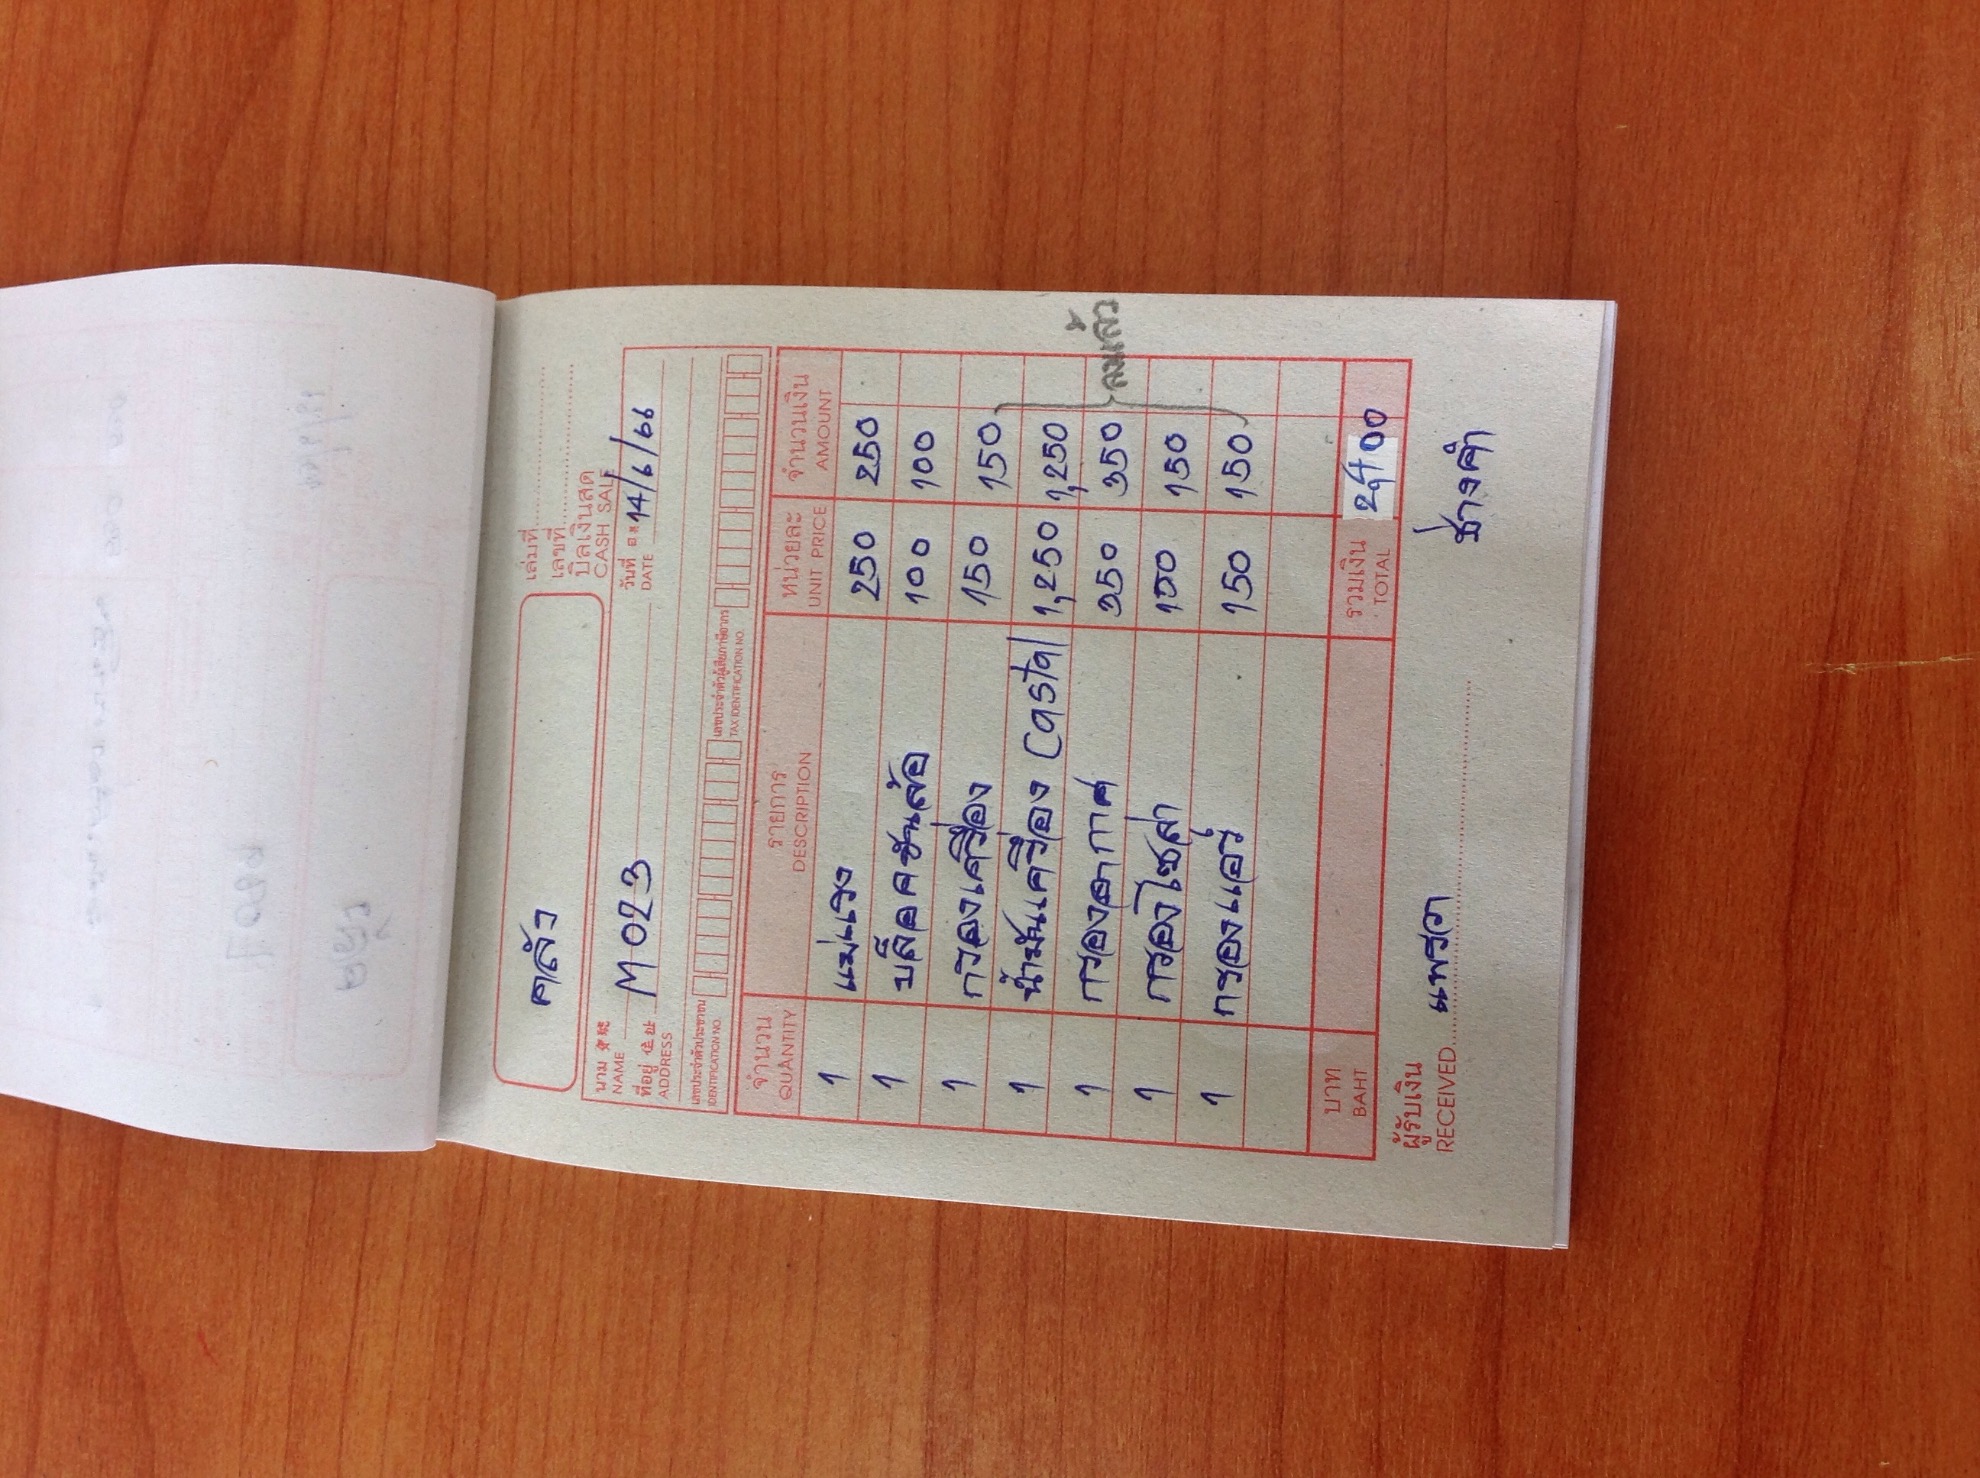 เล่มที่
เลขที่
คลัว
บิลเงินสด
CASH SALE
นาม
NAME
M 023
วันที่ 14/6/66
DATE
ที่อยู่ 住址
ADDRESS
เลขประจำตัวประชาชน เลขประจำตัวผู้เสียภาษีอากร
IDENTIFICATION NO. TAX IDENTIFICATION NO.
จำนวน รายการ หน่วยละ จำนวนเงิน
QUANTITY DESCRIPTION UNIT PRICE AMOUNT
1 แม่แรง 250 250
1 บล็อคขันล้อ 100 100
1 กรองเครื่อง 150 150
1 น้ำมันเครื่อง Castal 1,250 1,250
1 กรองอากาศ 350 350
1 กรองโซล่า 150 150
1 กรองแอร์ 150 150
ลงแล้ว
บาท รวมเงิน 2,400
BAHT TOTAL
ผู้รับเงิน
RECEIVED แพรวา
ช่างคำ